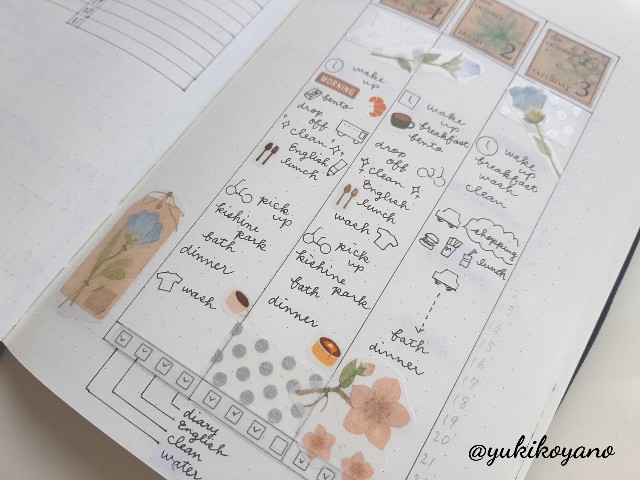 1
wake
up
MORNING
bento
drop
off
clean
English
lunch
pick
up
kishine
park
bath
dinner
wash
2
wake
up
breakfast
bento
drop
off
clean
English
lunch
wash
pick
up
kishine
park
bath
dinner
OCTOBER
SATURDAY
3
wake
up
breakfast
wash
clean
shopping
lunch
bath
dinner
15
16
17
18
19
20
21
diary
English
clean
water
@yukikoyano